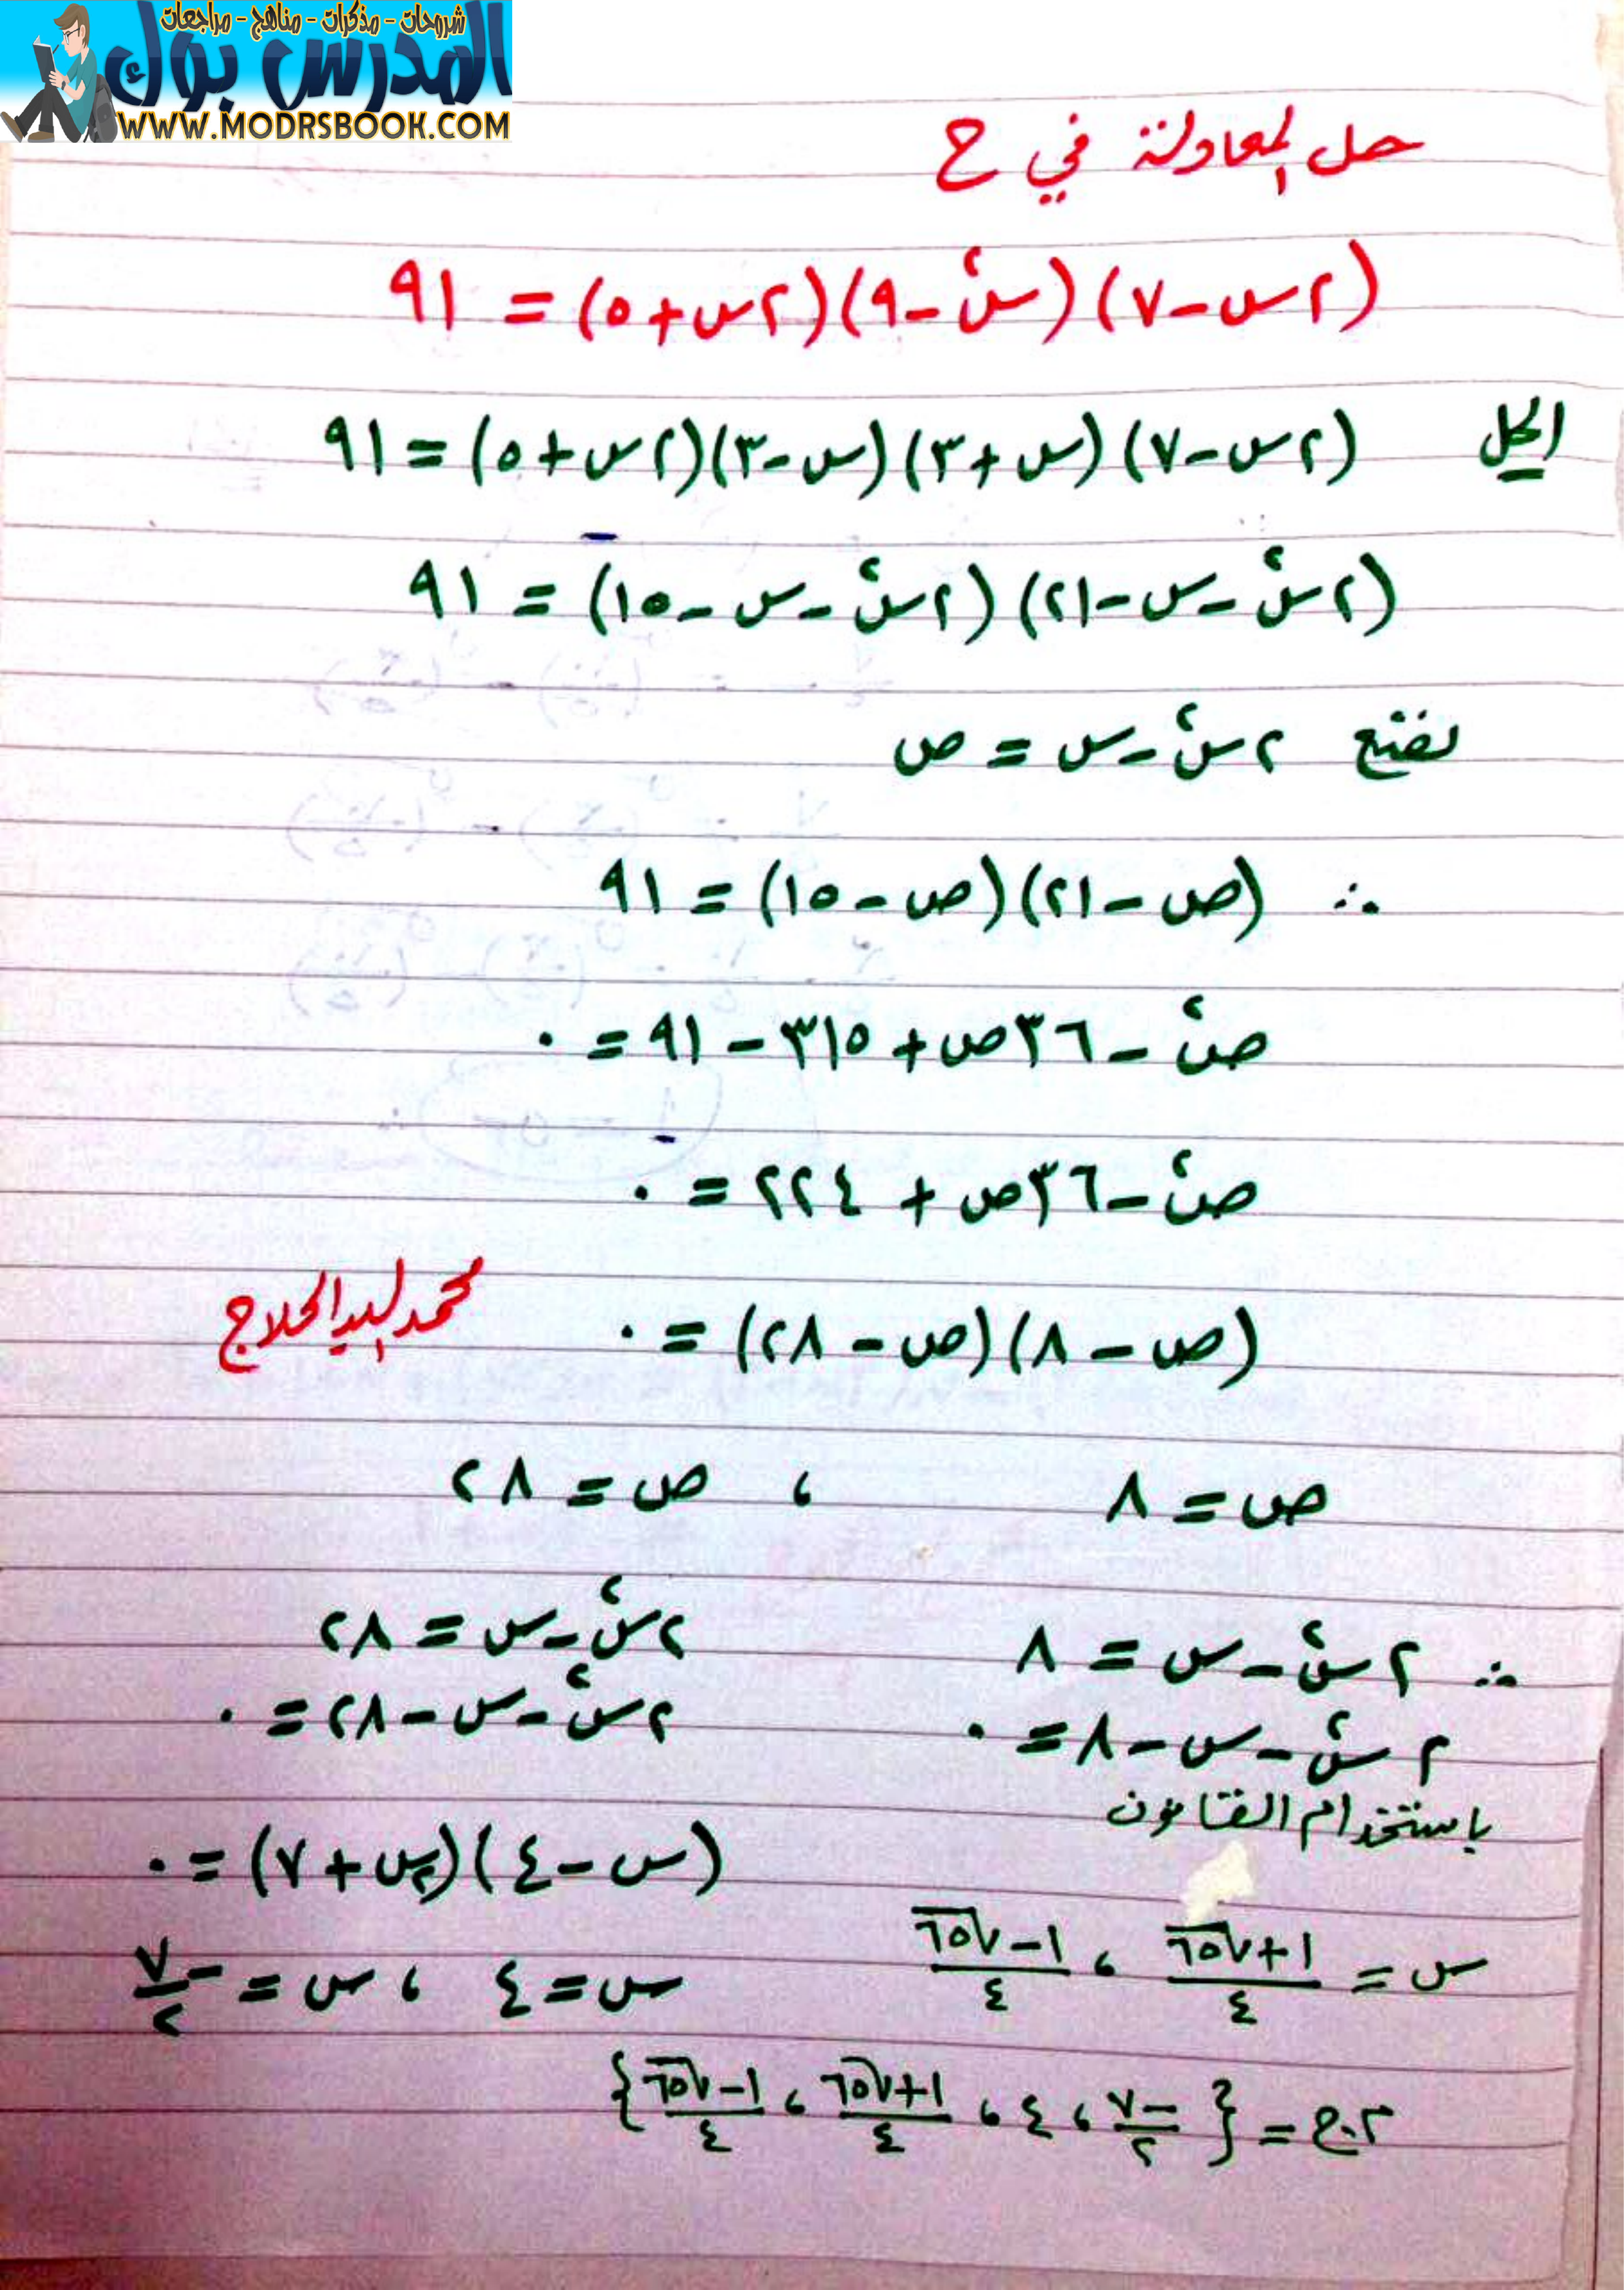 شروحات - مذكرات - مناهج - مراجعات
المدرس بوك
WWW.MODRSBOOK.COM
حل المعادلة في ح
(٢س-٧)(س٢-٩)(٢س+٥) = ٩١
الحل (٢س-٧)(س+٣)(س-٣)(٢س+٥) = ٩١
(٢س٢-س-٢١)(٢س٢-س-١٥) = ٩١
نضع ٢س٢-س = ص
∴ (ص-٢١)(ص-١٥) = ٩١
ص٢-٣٦ص+٣١٥-٩١ = ٠
ص٢-٣٦ص+٢٢٤ = ٠
(ص-٨)(ص-٢٨) = ٠
محمد السيد الحلاج
ص = ٨ ، ص = ٢٨
∴ ٢س٢-س = ٨ ٢س٢-س = ٢٨
٢س٢-س-٨ = ٠ ٢س٢-س-٢٨ = ٠
باستخدام القانون
(س-٤)(٢س+٧) = ٠
س = (١+√٦٥)/٤ ، (١-√٦٥)/٤ س = ٤ ، س = -٧/٢
م.ح = {-٧/٢ ، ٤ ، (١+√٦٥)/٤ ، (١-√٦٥)/٤}